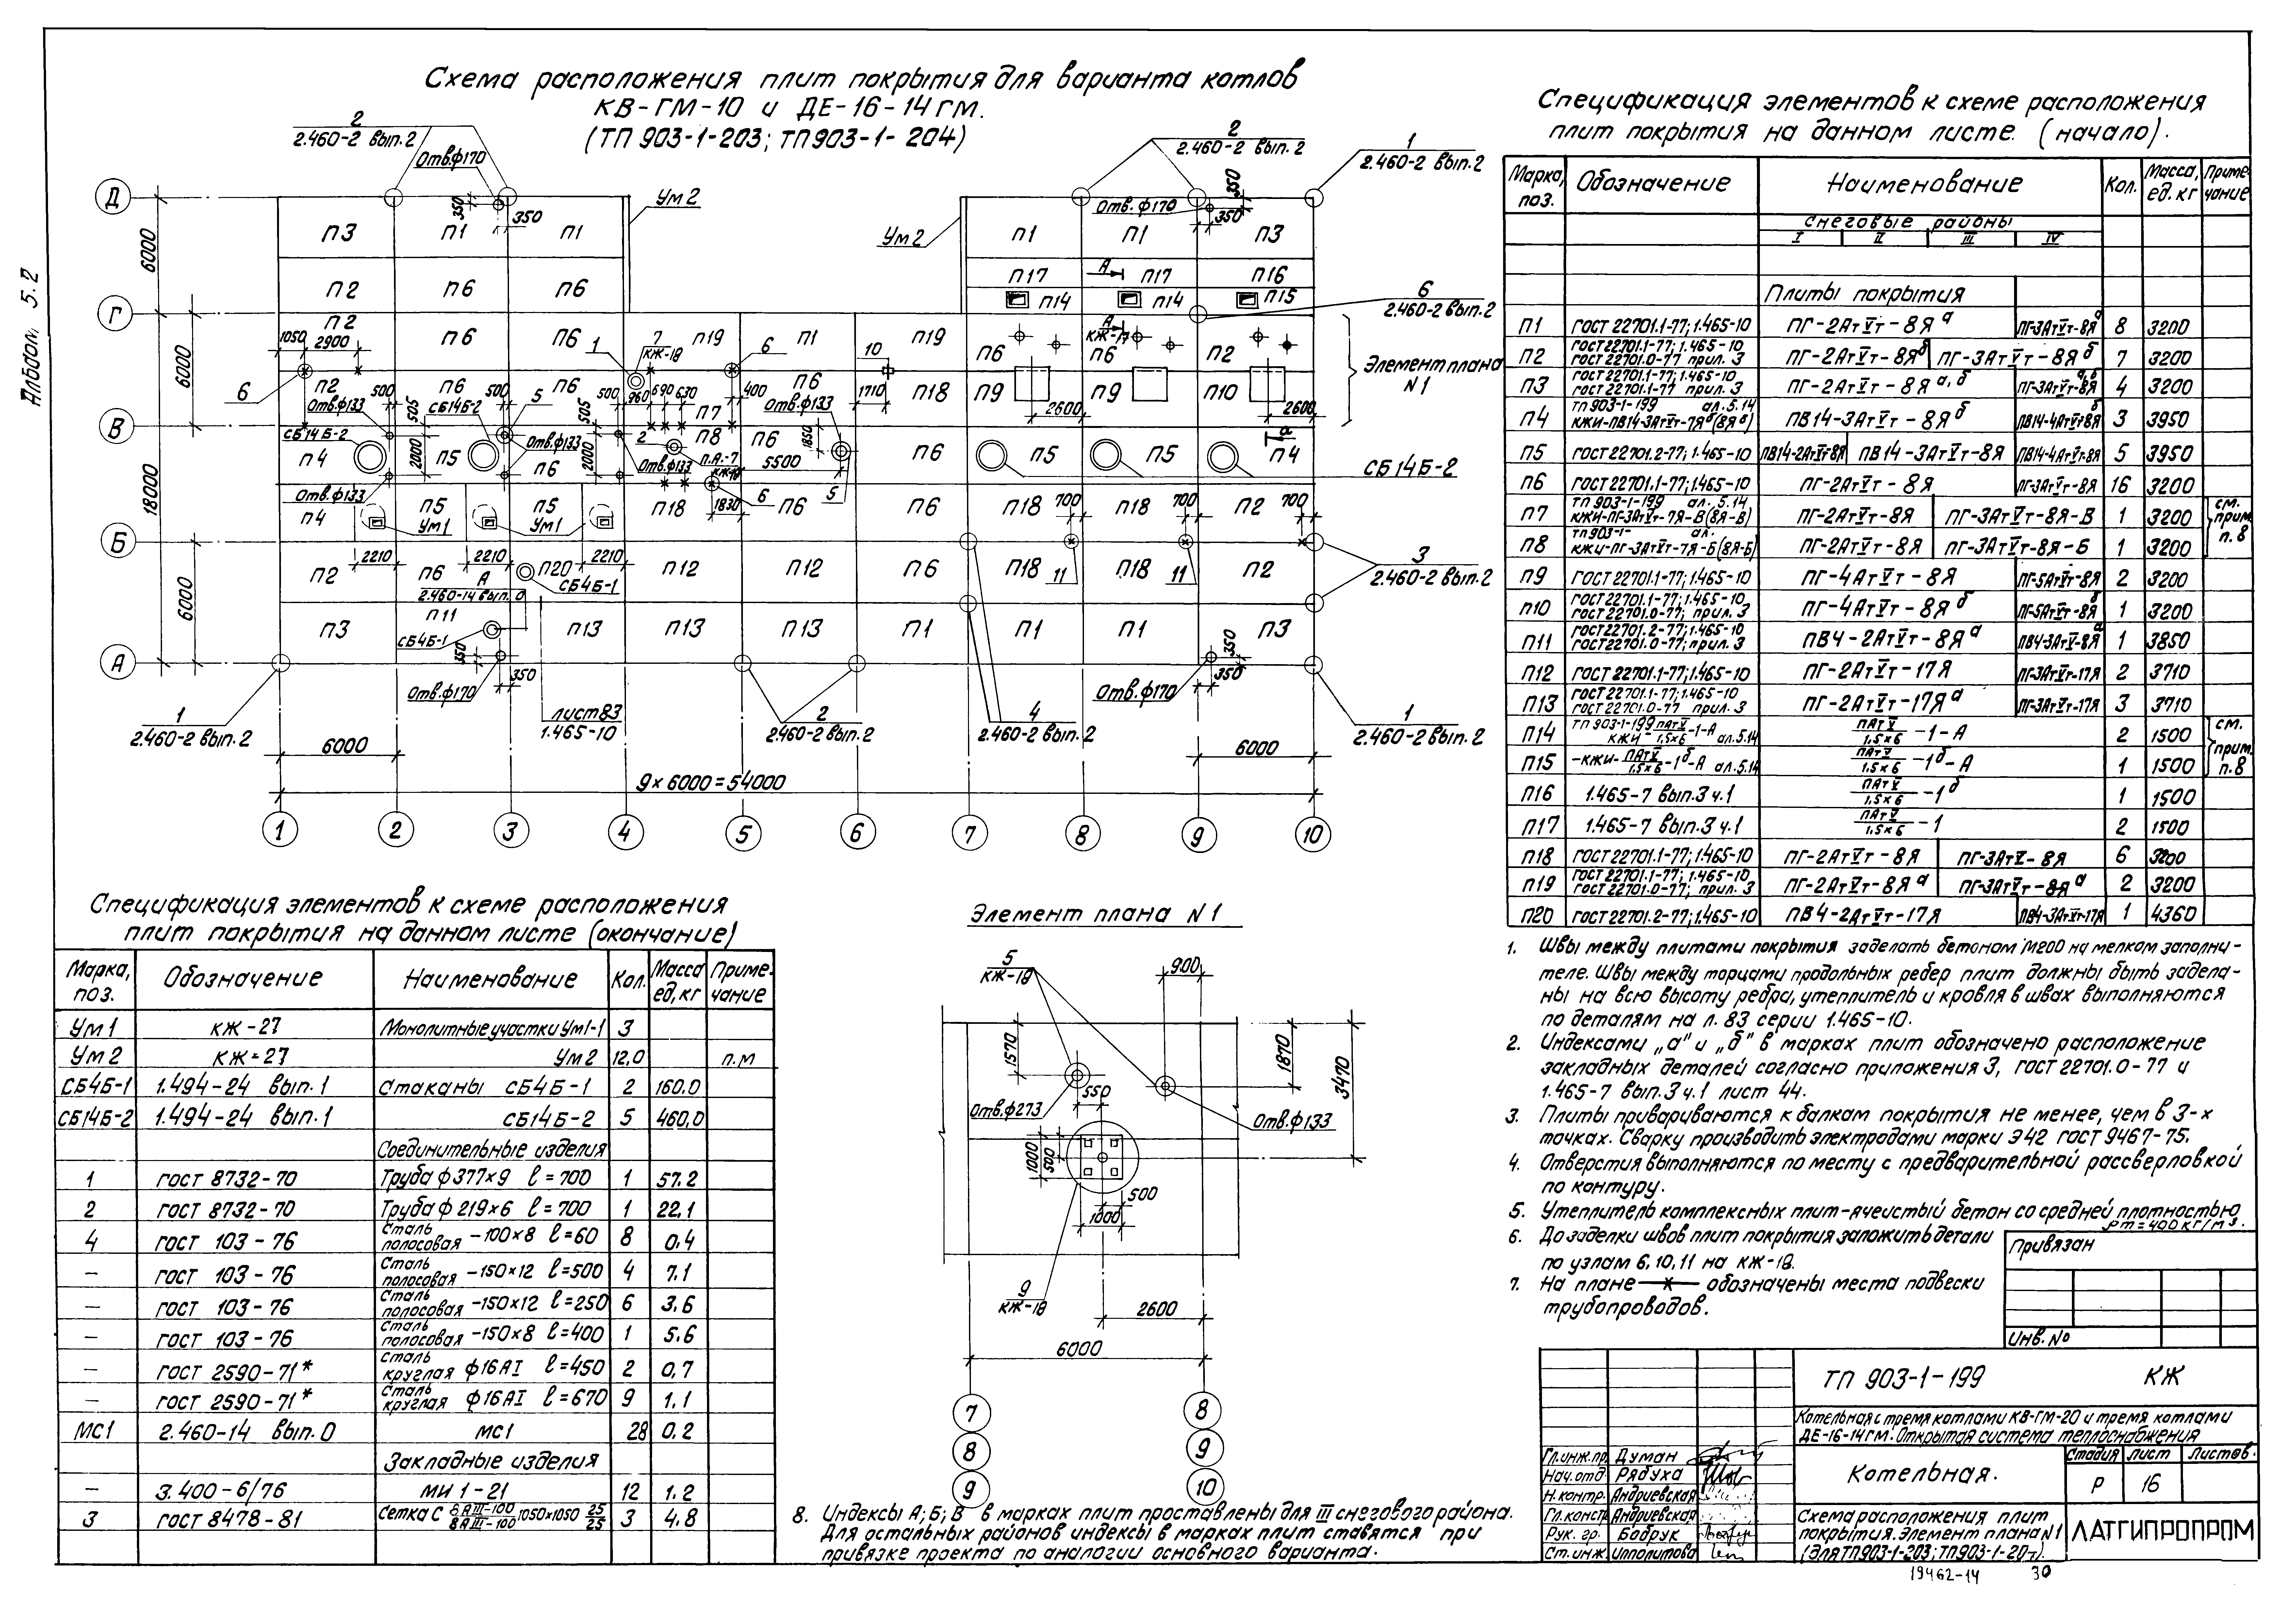 Альбом 5.2
Схема расположения плит покрытия для варианта котлов
КВ-ГМ-10 и ДЕ-16-14 ГМ.
(ТП 903-1-203; ТП903-1-204)
2
2.460-2 вып.2
Отв.ф170
350
350
Ум 2
Ум 2
2
2.460-2 вып.2
1
2.460-2 вып.2
Отв.ф170
350
350
Д
П3 П1 П1
П1 П1 П3
6000
П17 А П17 П16
П2 П6 П6
П14 П14 П15
Г
6
2.460-2 вып.2
П2 П6 П6
7
КЖ-18
П19 П1 П19
А
КЖ-17
П6 П6 П2
1050 2900
1
6
10
6000
Элемент плана
N1
6
П2 П6 П6 П6 П18 П9 П9 П10
500 500 500 960 690 630 400 1710
5
2600 2600
Отв.ф133 505 СБ14Б-2 505 П7 Отв.ф133
В
СБ14Б-2 Отв.ф133 2 П8 П6 1850
а
П4 2000 П5 П6 2000 Отв.ф133 П.А.-7
КЖ-18
5500
П6 П5 П5 П4
СБ14Б-2
18000
Отв.ф133
6
5
П4 П5 П5 П18 1830 П6 П6 П18 700 П18 700 П2 700
Ум1 Ум1
Б
2210 2210 2210
3
2.460-2 вып.2
П2 П6 П20 П12 П12 П6 П18 11 П18 11 П2
СБ4Б-1
А
2.460-14 вып. 0
6000
П11
П3 П13 П13 П13 П1 П1 П1 П3
СБ4Б-1
350
350
А
350
350
Отв.ф170
Отв.ф170
1
2.460-2 вып.2
лист83
1.465-10
2
2.460-2 вып.2
4
2.460-2 вып.2
1
2.460-2 вып.2
6000
6000
9×6000=54000
1 2 3 4 5 6 7 8 9 10
Спецификация элементов к схеме расположения
плит покрытия на данном листе. (начало).
Марка, поз. Обозначение Наименование Кол. Масса, ед. кг Примечание
снеговые районы
I II III IV
Плиты покрытия
П1 ГОСТ 22701.1-77; 1.465-10 ПГ-2АтVт-8Яа ПГ-3АтVт-8Яа 8 3200
П2 ГОСТ 22701.1-77; 1.465-10 ГОСТ 22701.0-77 прил. 3 ПГ-2АтVт-8Яб ПГ-3АтVт-8Яб 7 3200
П3 ГОСТ 22701.1-77; 1.465-10 ГОСТ 22701.1-77 прил. 3 ПГ-2АтVт-8Яа,б ПГ-3АтVт-8Яа,б 4 3200
П4 ТП 903-1-199 ал. 5.14 КЖИ-ПВ14-3АтVт-7Яб(8Яб) ПВ14-3АтVт-8Яб ПВ14-4АтVт-8Яб 3 3950
П5 ГОСТ 22701.2-77; 1.465-10 ПВ14-2АтVт-8Я ПВ14-3АтVт-8Я ПВ14-4АтVт-8Я 5 3950
П6 ГОСТ 22701.1-77; 1.465-10 ПГ-2АтVт-8Я ПГ-3АтVт-8Я 16 3200
П7 ТП 903-1-199 ал. 5.14 КЖИ-ПГ-3АтVт-7Я-В(8Я-В) ПГ-2АтVт-8Я ПГ-3АтVт-8Я-В 1 3200 см. прим. п.8
П8 ТП903-1- ал. КЖИ-ПГ-3АтVт-7Я-Б(8Я-Б) ПГ-2АтVт-8Я ПГ-3АтVт-8Я-Б 1 3200
П9 ГОСТ 22701.1-77; 1.465-10 ПГ-4АтVт-8Я ПГ-5АтVт-8Я 2 3200
П10 ГОСТ 22701.1-77; 1.465-10 ГОСТ 22701.0-77; прил. 3 ПГ-4АтVт-8Яб ПГ-5АтVт-8Яб 1 3200
П11 ГОСТ 22701.2-77; 1.465-10 ГОСТ 22701.0-77; прил. 3 ПВ4-2АтVт-8Яа ПВ4-3АтVт-8Яа 1 3850
П12 ГОСТ 22701.1-77; 1.465-10 ПГ-2АтVт-17Я ПГ-3АтVт-17Я 2 3710
П13 ГОСТ 22701.1-77; 1.465-10 ГОСТ 22701.0-77 прил. 3 ПГ-2АтVт-17Яа ПГ-3АтVт-17Я 3 3710
П14 ТП 903-1-199 КЖИ-ПАтV/1,5×6-1-А ал. 5.14 ПАтV/1,5×6-1-А 2 1500 см. прим. п.8
П15 -КЖИ-ПАтV/1,5×6-1б-А ал. 5.14 ПАтV/1,5×6-1б-А 1 1500
П16 1.465-7 вып.3 ч.1 ПАтV/1,5×6-1б 1 1500
П17 1.465-7 вып.3 ч.1 ПАтV/1,5×6-1 2 1500
П18 ГОСТ 22701.1-77; 1.465-10 ПГ-2АтVт-8Я ПГ-3АтV-8Я 6 3200
П19 ГОСТ 22701.1-77; 1.465-10 ГОСТ 22701.0-77; прил. 3 ПГ-2АтVт-8Яа ПГ-3АтVт-8Яа 2 3200
П20 ГОСТ 22701.2-77; 1.465-10 ПВ4-2АтVт-17Я ПВ4-3АтVт-17Я 1 4360
Спецификация элементов к схеме расположения
плит покрытия на данном листе (окончание)
Марка, поз. Обозначение Наименование Кол. Масса ед, кг Примечание
Ум1 КЖ-27 Монолитные участки Ум1-1 3
Ум2 КЖ-27 Ум2 12,0 п.м
СБ4Б-1 1.494-24 вып. 1 Стаканы СБ4Б-1 2 160.0
СБ14Б-2 1.494-24 вып. 1 СБ14Б-2 5 460,0
Соединительные изделия
1 ГОСТ 8732-70 Труба ф377×9 l=700 1 57.2
2 ГОСТ 8732-70 Труба ф219×6 l=700 1 22,1
4 ГОСТ 103-76 Сталь полосовая -100×8 l=60 8 0.4
— ГОСТ 103-76 Сталь полосовая -150×12 l=500 4 7.1
— ГОСТ 103-76 Сталь полосовая -150×12 l=250 6 3.6
— ГОСТ 103-76 Сталь полосовая -150×8 l=400 1 5.6
— ГОСТ 2590-71* Сталь круглая ф16АI l=450 2 0,7
— ГОСТ 2590-71* Сталь круглая ф16АI l=670 9 1.1
МС1 2.460-14 вып. 0 МС1 28 0.2
Закладные изделия
— 3.400-6/76 МИ 1-21 12 1.2
3 ГОСТ 8478-81 Сетка С 8АIII-100/8АIII-100 1050×1050 25/25 3 4.8
Элемент плана N1
5
КЖ-18
900
1570
1870
3470
550
Отв.ф273
Отв.ф133
1000
500
500
1000
9
КЖ-18
2600
6000
7 8
8 9
9 10
1. Швы между плитами покрытия заделать бетоном М200 на мелком заполни-
теле. Швы между торцами продольных ребер плит должны быть задела-
ны на всю высоту ребра, утеплитель и кровля в швах выполняются
по деталям на л. 83 серии 1.465-10.
2. Индексами „а" и „б" в марках плит обозначено расположение
закладных деталей согласно приложения 3, ГОСТ 22701.0-77 и
1.465-7 вып.3 ч.1 лист 44.
3. Плиты привариваются к балкам покрытия не менее, чем в 3-х
точках. Сварку производить электродами марки Э42 ГОСТ 9467-75.
4. Отверстия выполняются по месту с предварительной рассверловкой
по контуру.
5. Утеплитель комплексных плит-ячеистый бетон со средней плотностью
ρm=400 кг/м3.
6. До заделки швов плит покрытия заложить детали
по узлам 6, 10, 11 на КЖ-18.
7. На плане —×— обозначены места подвески
трубопроводов.
8. Индексы А; Б; В в марках плит проставлены для III снегового района.
Для остальных районов индексы в марках плит ставятся при
привязке проекта по аналогии основного варианта.
Привязан
Инв. No
ТП 903-1-199 КЖ
Котельная с тремя котлами КВ-ГМ-20 и тремя котлами
ДЕ-16-14ГМ. Открытая система теплоснабжения
Гл.инж.пр. Думан
Нач.отд. Рябуха
Н.контр. Андриевская
Гл.констр. Андриевская
Рук. гр. Бобрук
Ст.инж. Ипполитова
Котельная.
Стадия Лист Листов.
Р 16
Схема расположения плит
покрытия. Элемент плана N1
(для ТП903-1-203; ТП903-1-20
ЛАТГИПРОПРОМ
19462-14 30